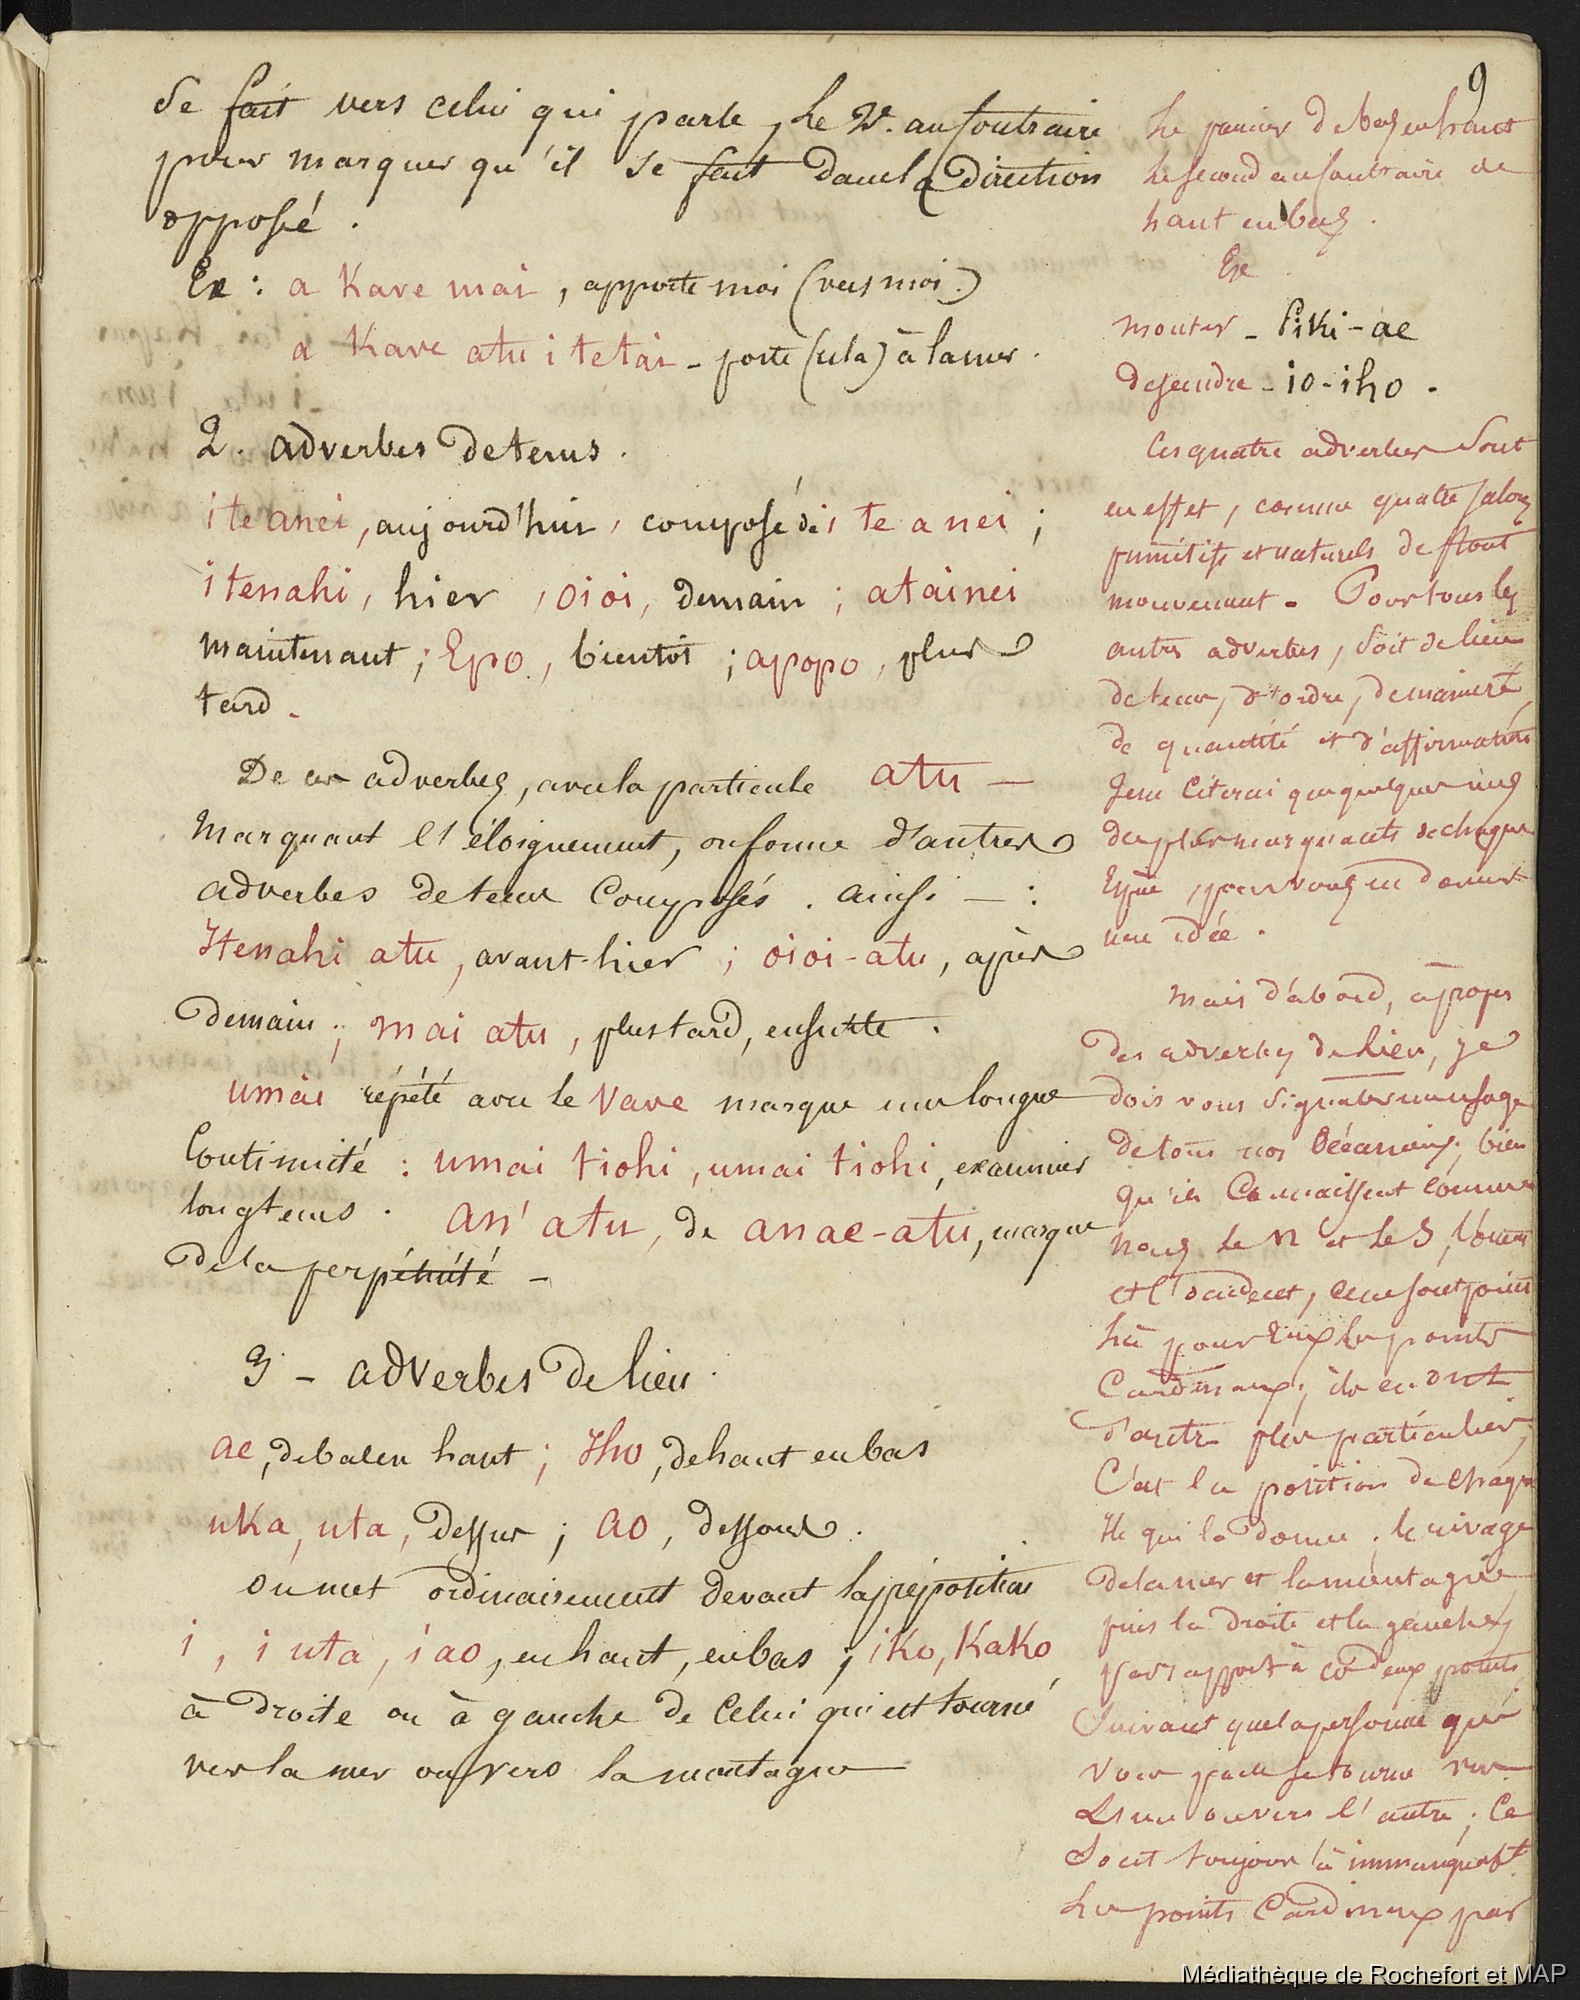 9
se fait vers celui qui parle, le 2e. au contraire
pour marquer qu'il se fait dans la direction
opposée.
Ex : a Kave mai, apporte moi (vers moi.)
a Kave atu i te tai - porte (cela) à la mer.
2. adverbes de tems.
i te anei, aujourd'hui, composé de i te a nei ;
itenahi, hier, oioi, demain ; atainei
maintenant ; Epo, bientôt ; apopo, plus
tard.
De ces adverbes, avec la particule atu —
marquant l'éloignement, on forme d'autres
adverbes de tems composés. ainsi — :
Itenahi atu, avant-hier ; oioi-atu, après
demain ; mai atu, plus tard, ensuite.
umai répété avec le vave marque une longue
continuité : umai tiohi, umai tiohi, examiner
longtems. an' atu, de anae-atu, marque
de la perpétuité -
3 - adverbes de lieu.
ae, de bas en haut ; Iho, de haut en bas
uka, uta, dessus ; ao, dessous.
on met ordinairement devant la préposition
i, i uta, i ao, en haut, en bas ; iko, Kako
à droite ou à gauche de celui qui est tourné
vers la mer ou vers la montagne
le premier de bas en haut
le second au contraire de
haut en bas.
Ex.
monter - Piki-ae
descendre - io-iho.
Ces quatre adverbes sont
en effet, comme quatre jalons
primitifs et naturels de tout
mouvement. Pour tous les
autres adverbes, soit de lieu
de tems, d'ordre, de manière,
de quantité et d'affirmation
Je ne citerai que quelques uns
des plus marquants de chaque
Espèce, pour vous en donner
une idée.
Mais d'abord, à propos
des adverbes de lieu, je
dois vous signaler un usage
de tous nos Océaniens ; bien
qu'ils connaissent comme
nous le N et le S, l'ouest
et l'occident, ce ne sont point
là pour eux les points
Cardinaux ; ils en ont
d'autres plus particuliers,
C'est la position de chaque
Ile qui la donne ; le rivage
de la mer et la montagne
puis la droite et la gauche,
par rapport à ces deux points
suivant que la personne qui
vous parle se tourne vers
l'une ou vers l'autre ; Ce
sont toujours là immanquablt
les points Cardinaux par
Médiathèque de Rochefort et MAP